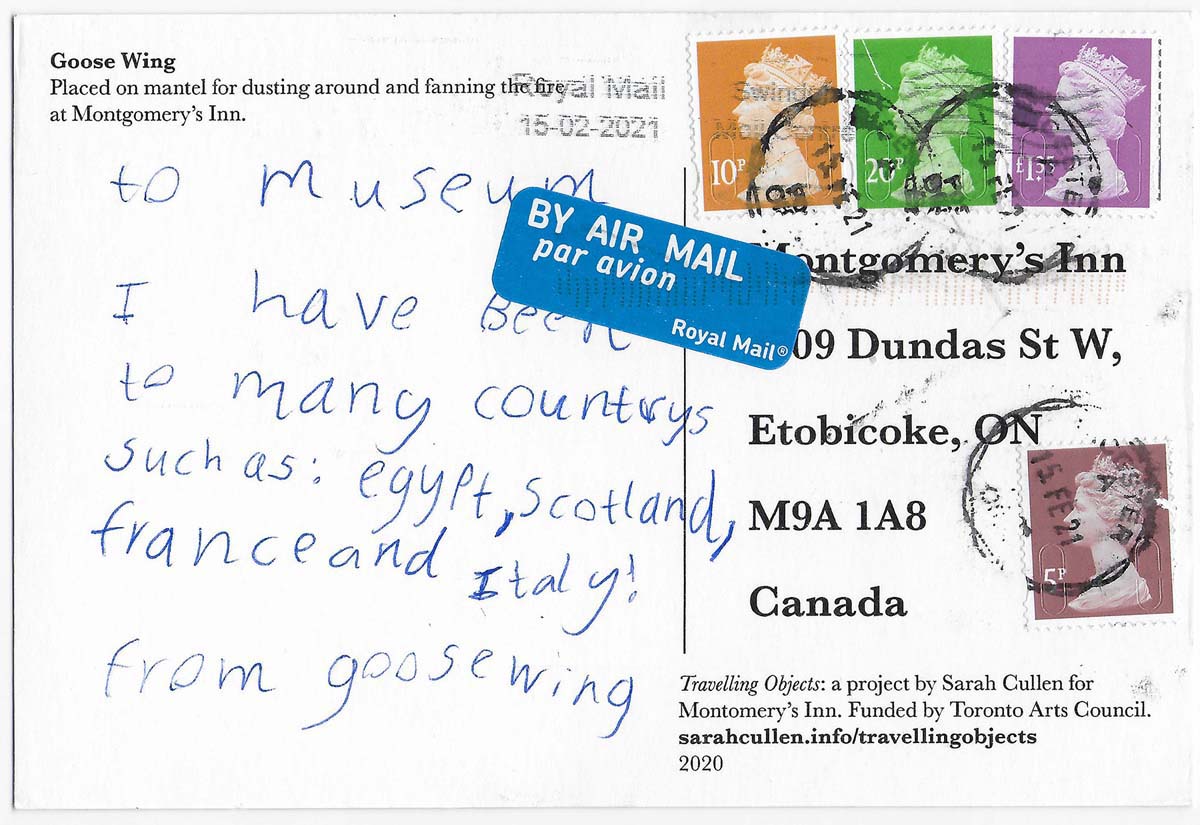 Goose Wing
Placed on mantel for dusting around and fanning the fire
at Montgomery's Inn.
Royal Mail
15-02-2021
Mail Centre
10P
20P
to museum
BY AIR MAIL
par avion
Royal Mail®
Montgomery's Inn
I have Been
09 Dundas St W,
to many countrys
Etobicoke, ON
such as: egypt, Scotland,
M9A 1A8
france and Italy!
15 FE 21
5P
Canada
from goosewing
Travelling Objects: a project by Sarah Cullen for
Montomery's Inn. Funded by Toronto Arts Council.
sarahcullen.info/travellingobjects
2020